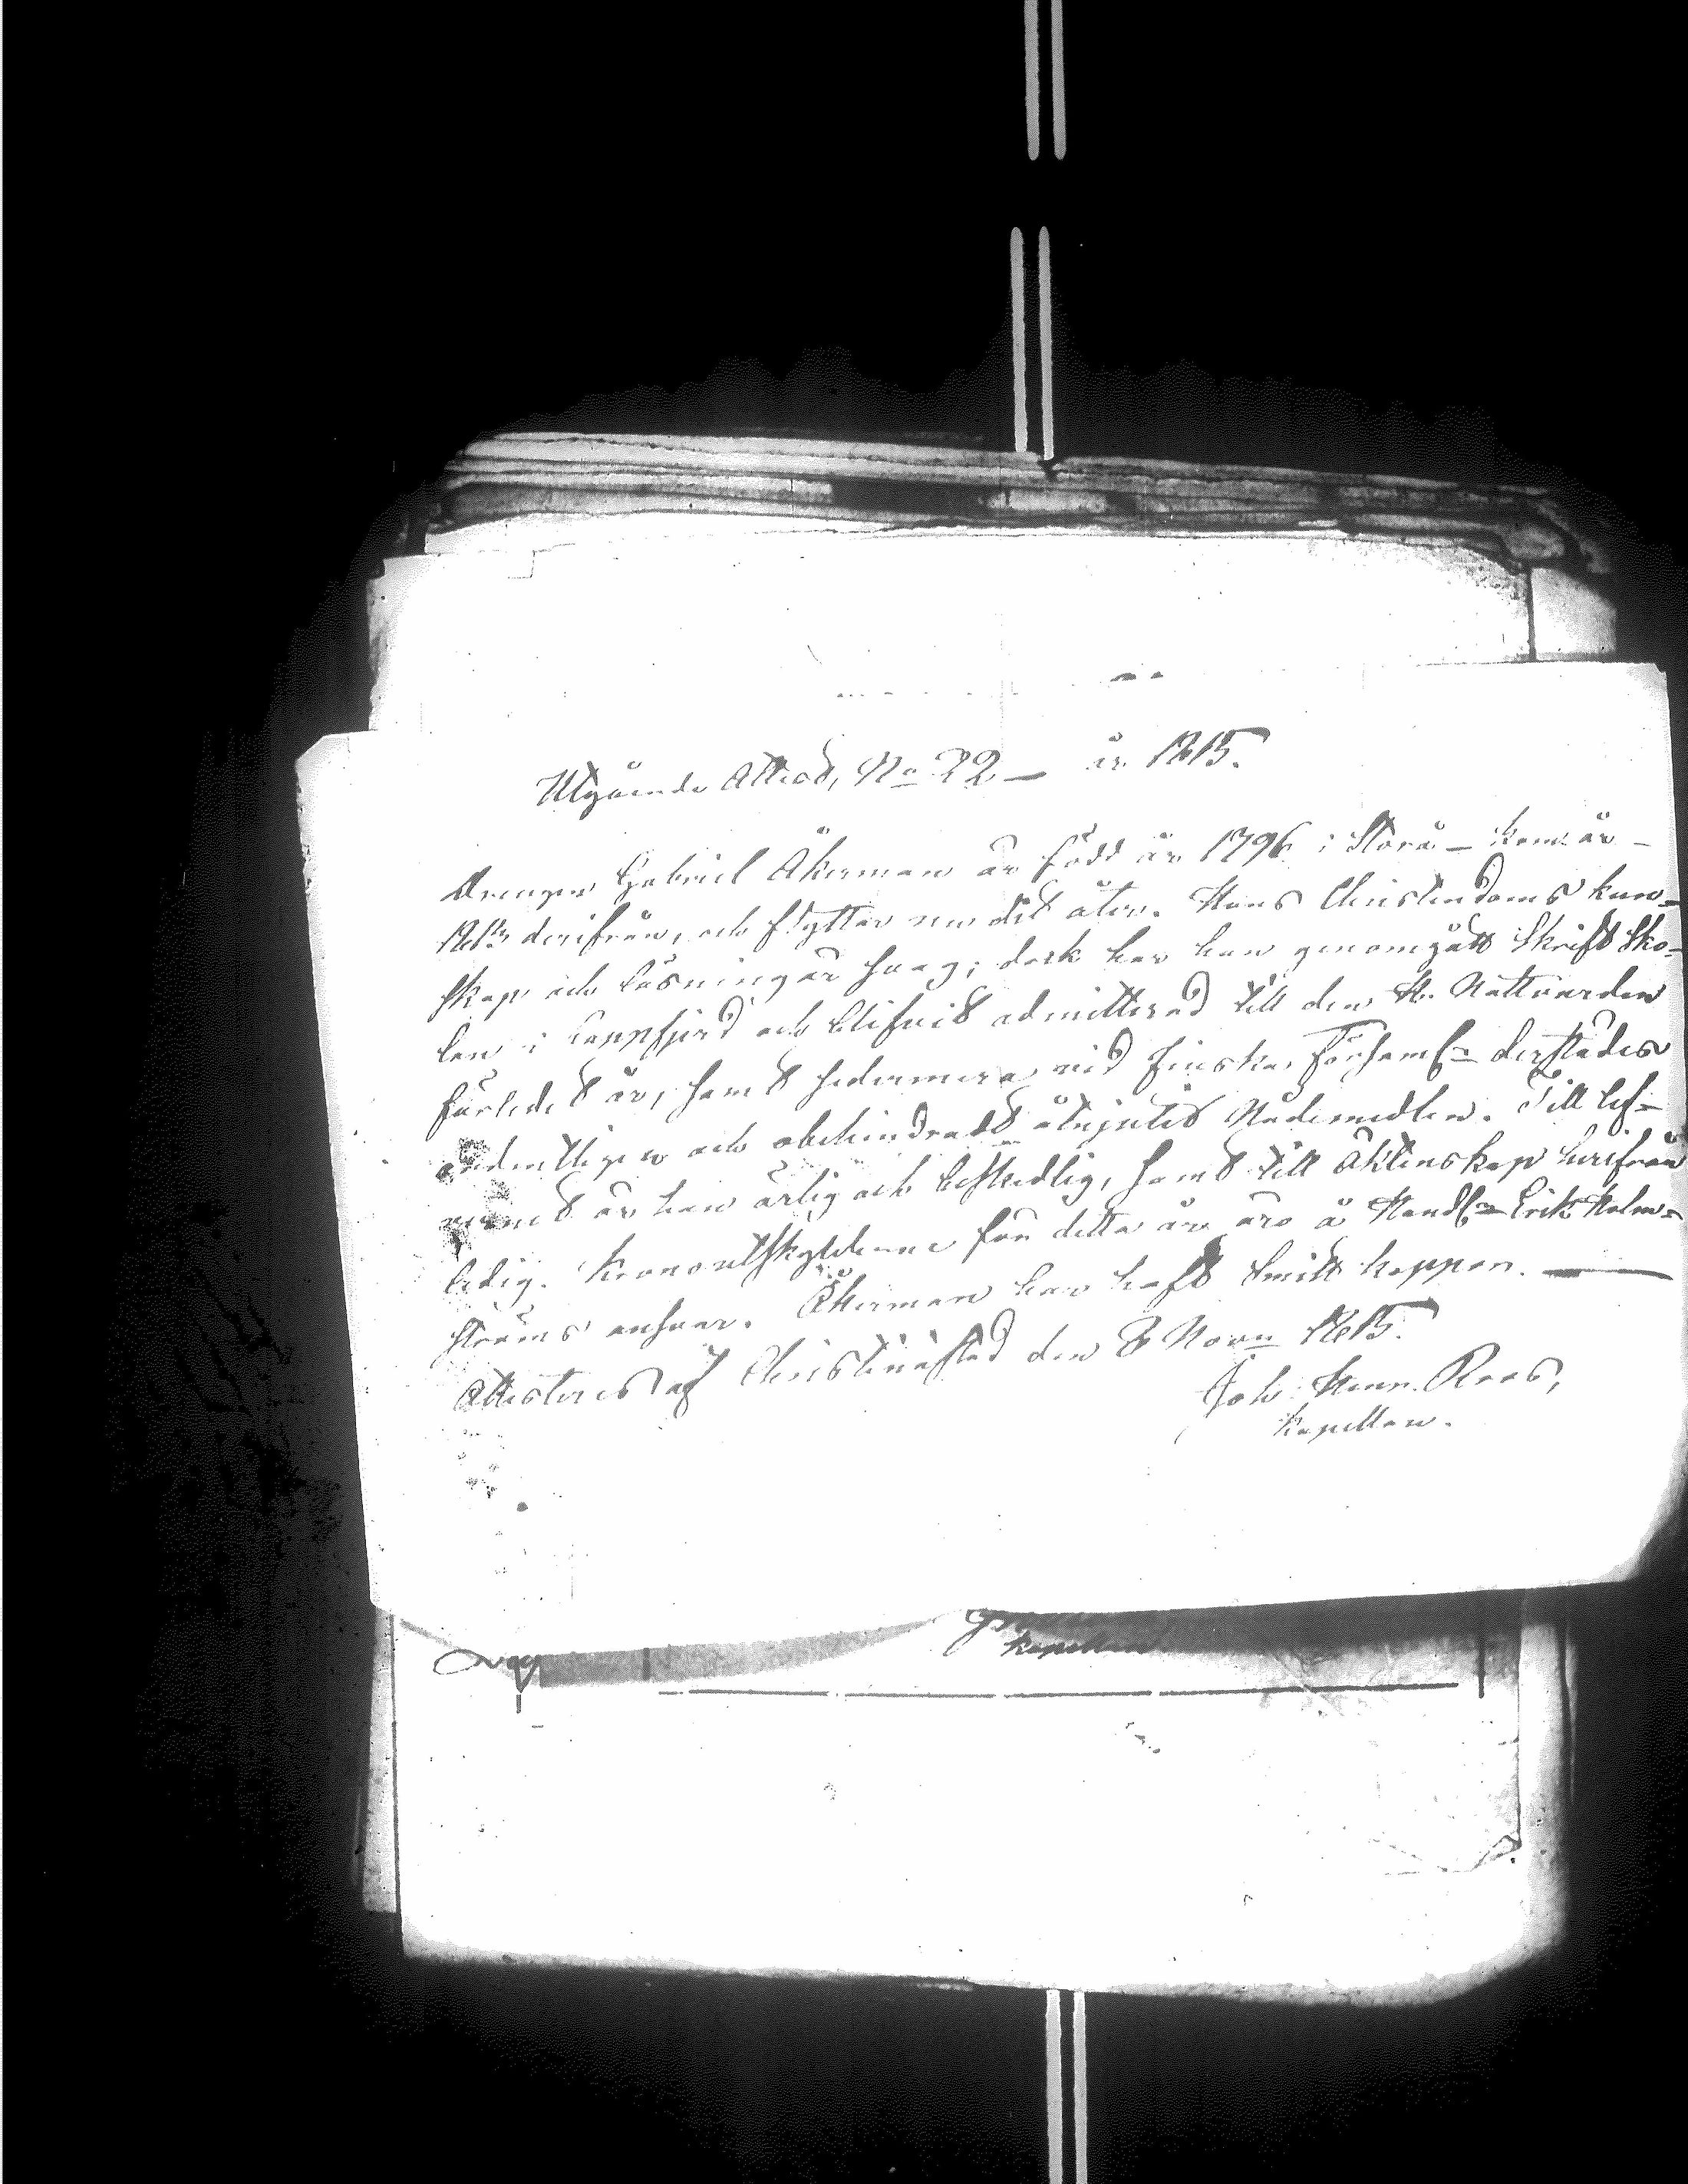 Utgående Attest, No 22 — år 1815.
Drengen Gabriel Åkerman är född år 1796 i Storå — kom år —
1813 derifrån, och flyttar nu dit åter. Hans Christendoms kun-
skap och läsning är svag; dock har han genomgått Skrift Sko-
lan i Lappfjerd och blifvit admitterad till den H. Nattvarden
förledet år, samt sedermera vid finska Församln derstädes
ordentligen och obehindradt åtnjutit Nådemedlen. Till lef-
vernet är han ärlig och beskedlig, samt till Äktenskap härifrån
ledig. Kronoutskylderne för detta år äro å Handln Erik Holm-
ströms ansvar. Åkerman har haft Smitt koppor. —
Attesteras af Christinæstad den 8 Novr 1815.
Joh: Henr. Roos,
Kapellan.
kapellan